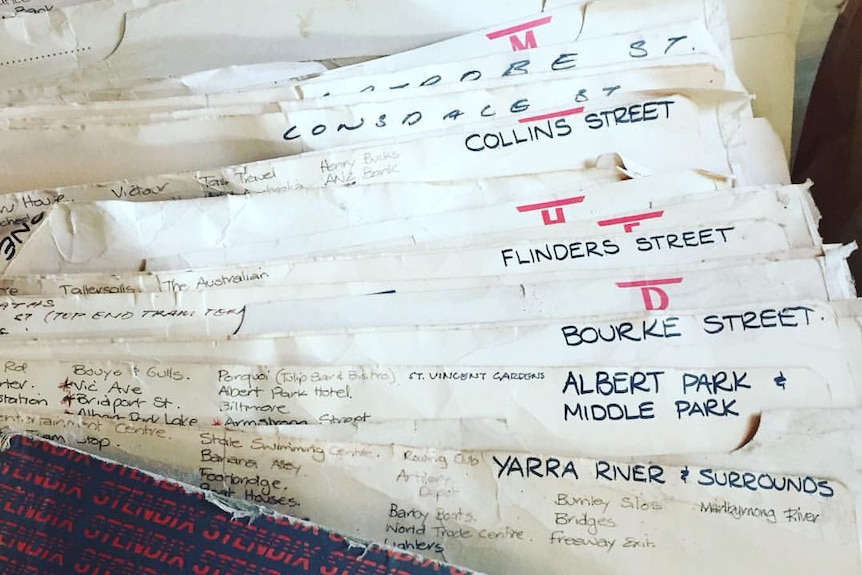 Bank
M
ST.
LONSDALE ST
COLLINS STREET
Henry Bucks
ANZ Bank
Travel
House.
U
FLINDERS STREET
Tattersalls.
The Australian
ST (TOP END TRAM TERM
D
BOURKE STREET.
ALBERT PARK &
MIDDLE PARK
ST. VINCENT GARDENS
Bouys & Gulls.
*Vic Ave
*Bridport St.
Albert Park Lake
(Tulip Bar & Bistro)
Albert Park Hotel.
Biltmore
*Armstrong Street
YARRA RIVER & SURROUNDS
Entertainment Centre.
Stop.
State Swimming Centre.
Banana Alley
Footbridge.
Boat Houses.
Rowing Club
Artillery
Depot
Barby Boats.
World Trade Centre.
Lighters
Burnley Silos
Bridges
Freeway Exit.
Maribyrnong River
STENDIX STENDIX
STENDIX STENDIX
STENDIX STENDIX